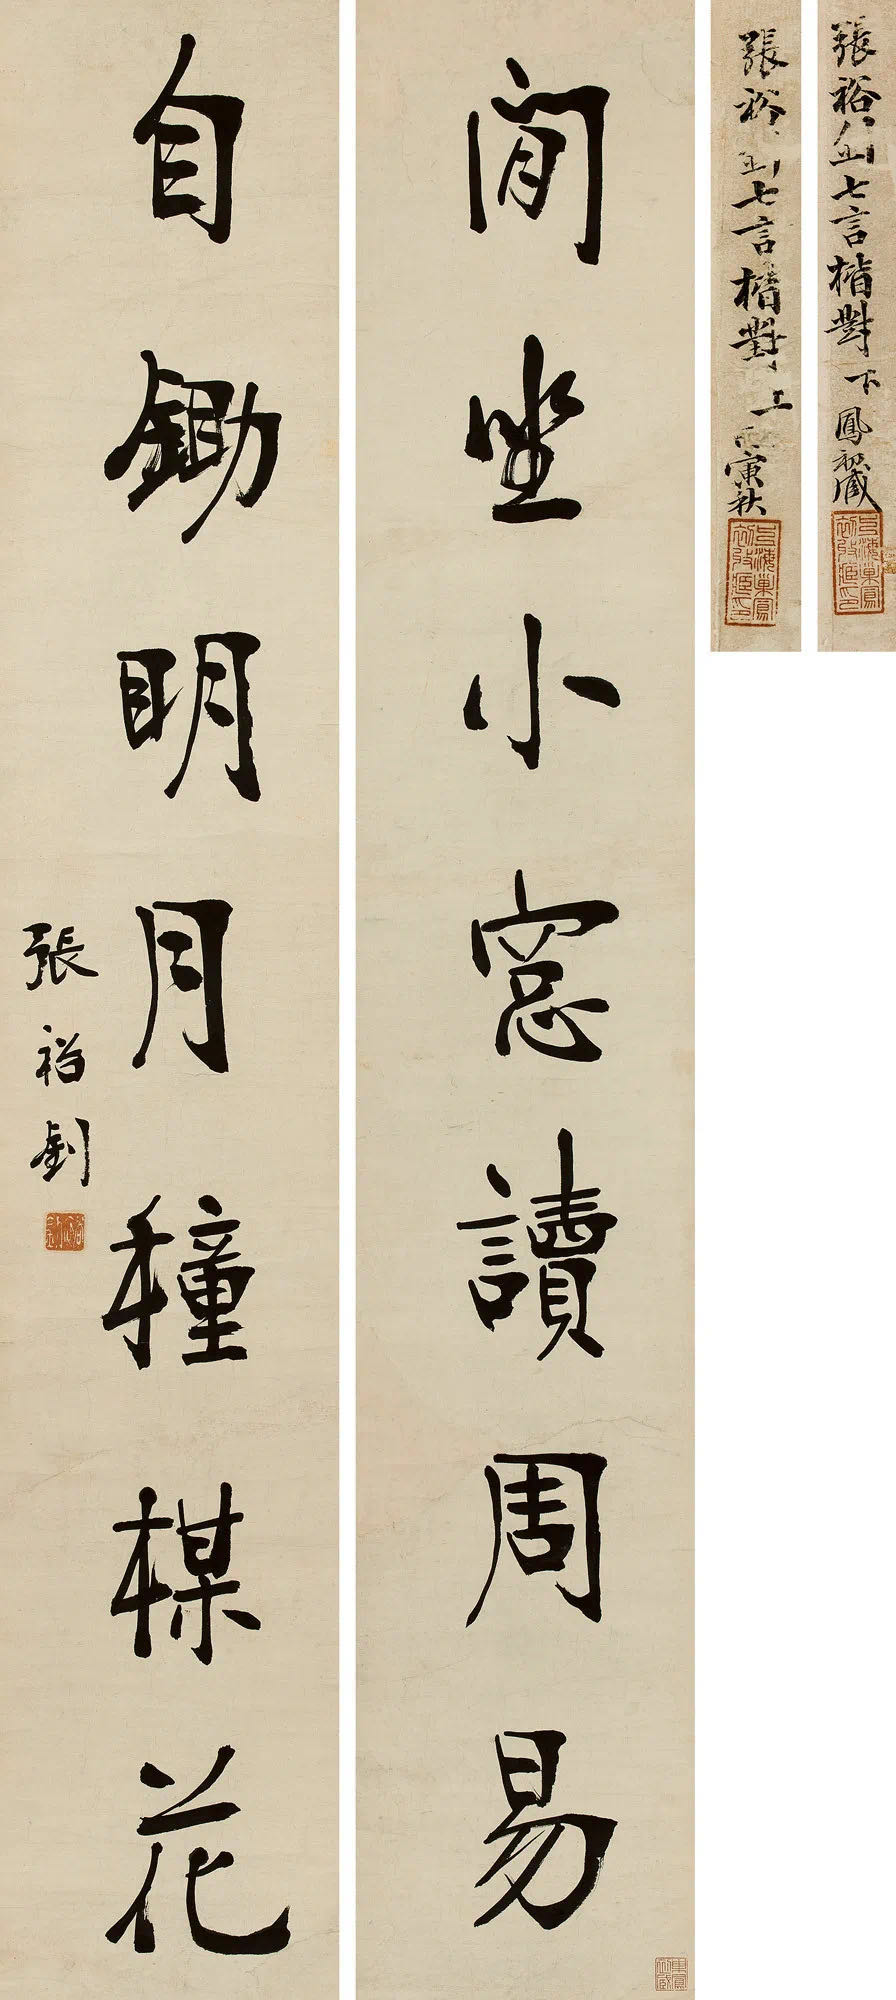 張裕釗七言楷對下鳳初藏
張裕釗七言楷對上 寅秋
閒坐小窓讀周易
自鋤明月種楳花
張裕釗